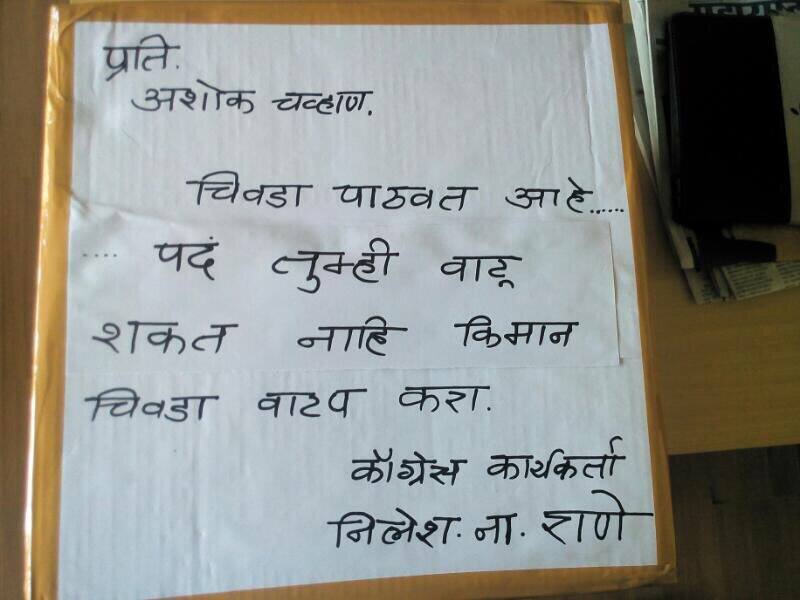 प्रति.
अशोक चव्हाण.
चिवडा पाठवत आहे......
.... पदं तुम्ही वाटू
शकत नाहि किमान
चिवडा वाटप करा.
काँग्रेस कार्यकर्ता
निलेश. ना. राणे